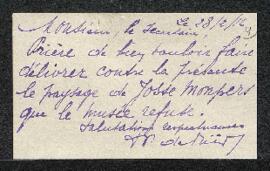 Le 28/2/12
Monsieur, le Secrétaire,
Prière de bien vouloir faire
délivrer contre la présente
le paysage de Josse Mompers
que le musée refuse.
Salutations respectueuses